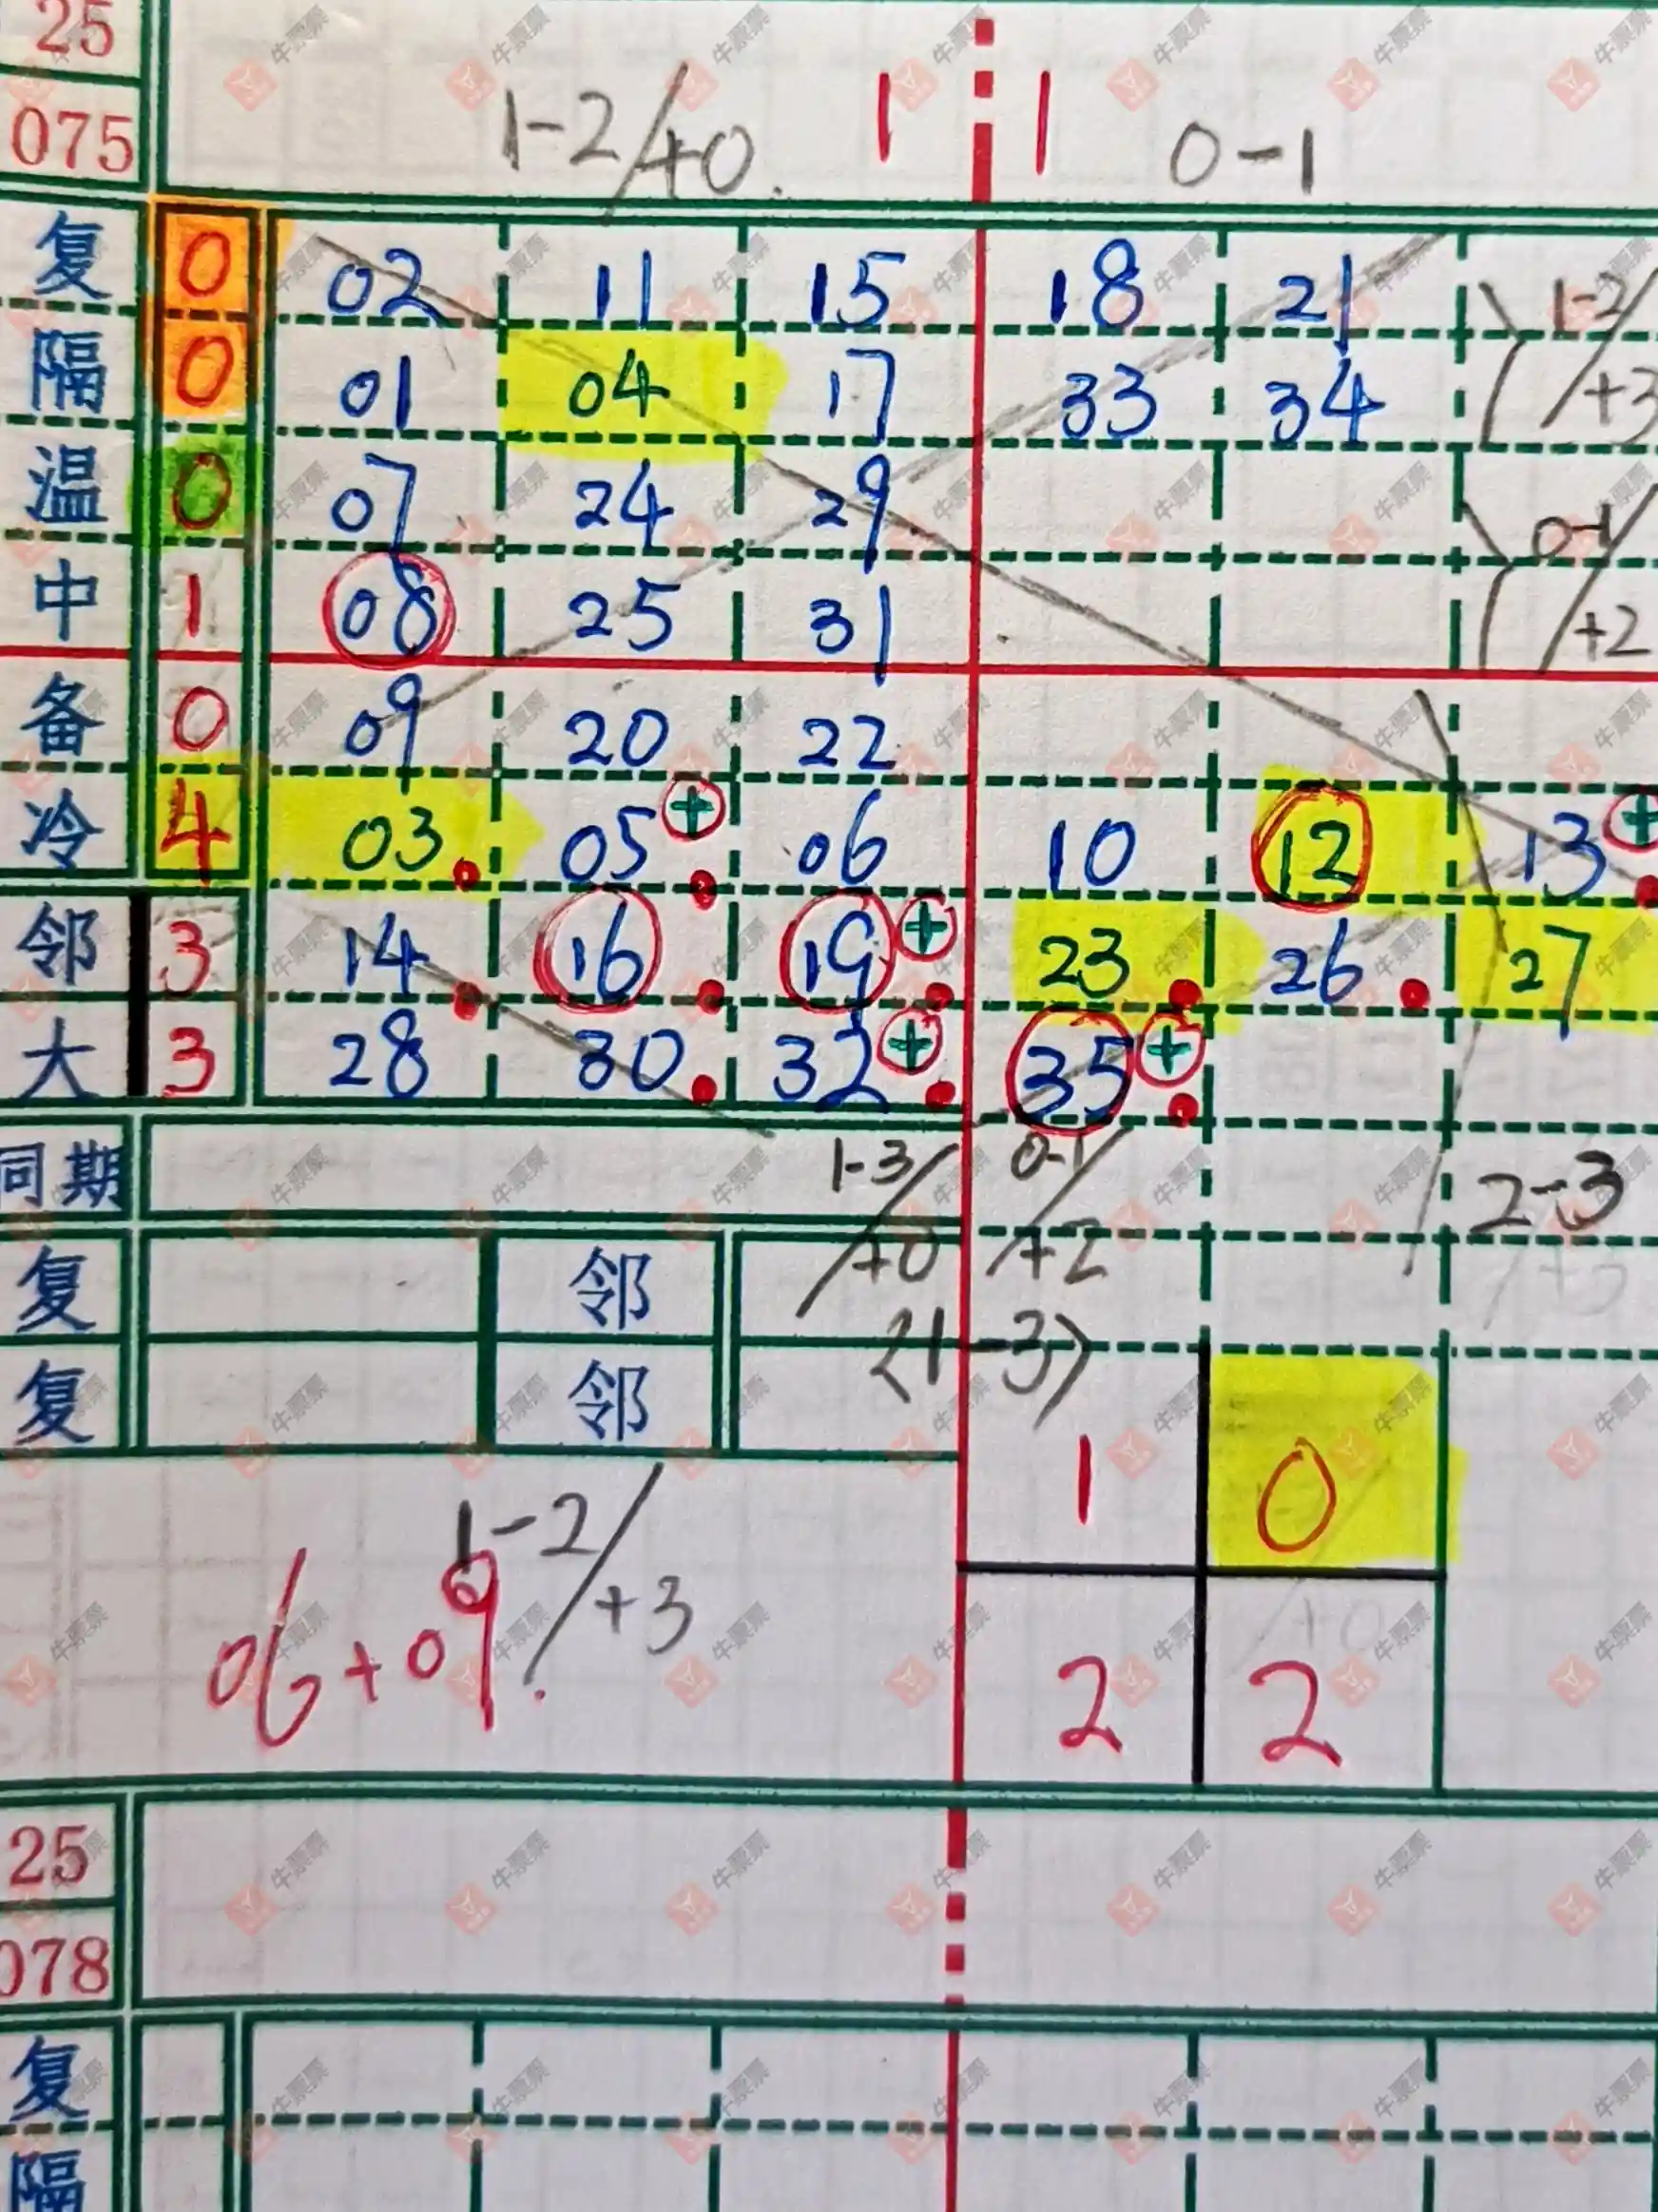 25
075 1-2/+0. 1 1 0-1
复 0 02 11 15 18 21 1-2/+3
隔 0 01 04 17 33 34
温 0 07 24 29 0-1/+2
中 1 08 25 31
备 0 09 20 22
冷 4 03 05 + 06 10 12 13 +
邻 3 14 16 19 + 23 26 27
大 3 28 30 32 + 35 +
同期 1-3/+0 0-1/+2 2-3
复 邻
复 邻 21-3>
1 0
06+09. 1-2/+3
+0
2 2
25
078
复
隔
牛票票